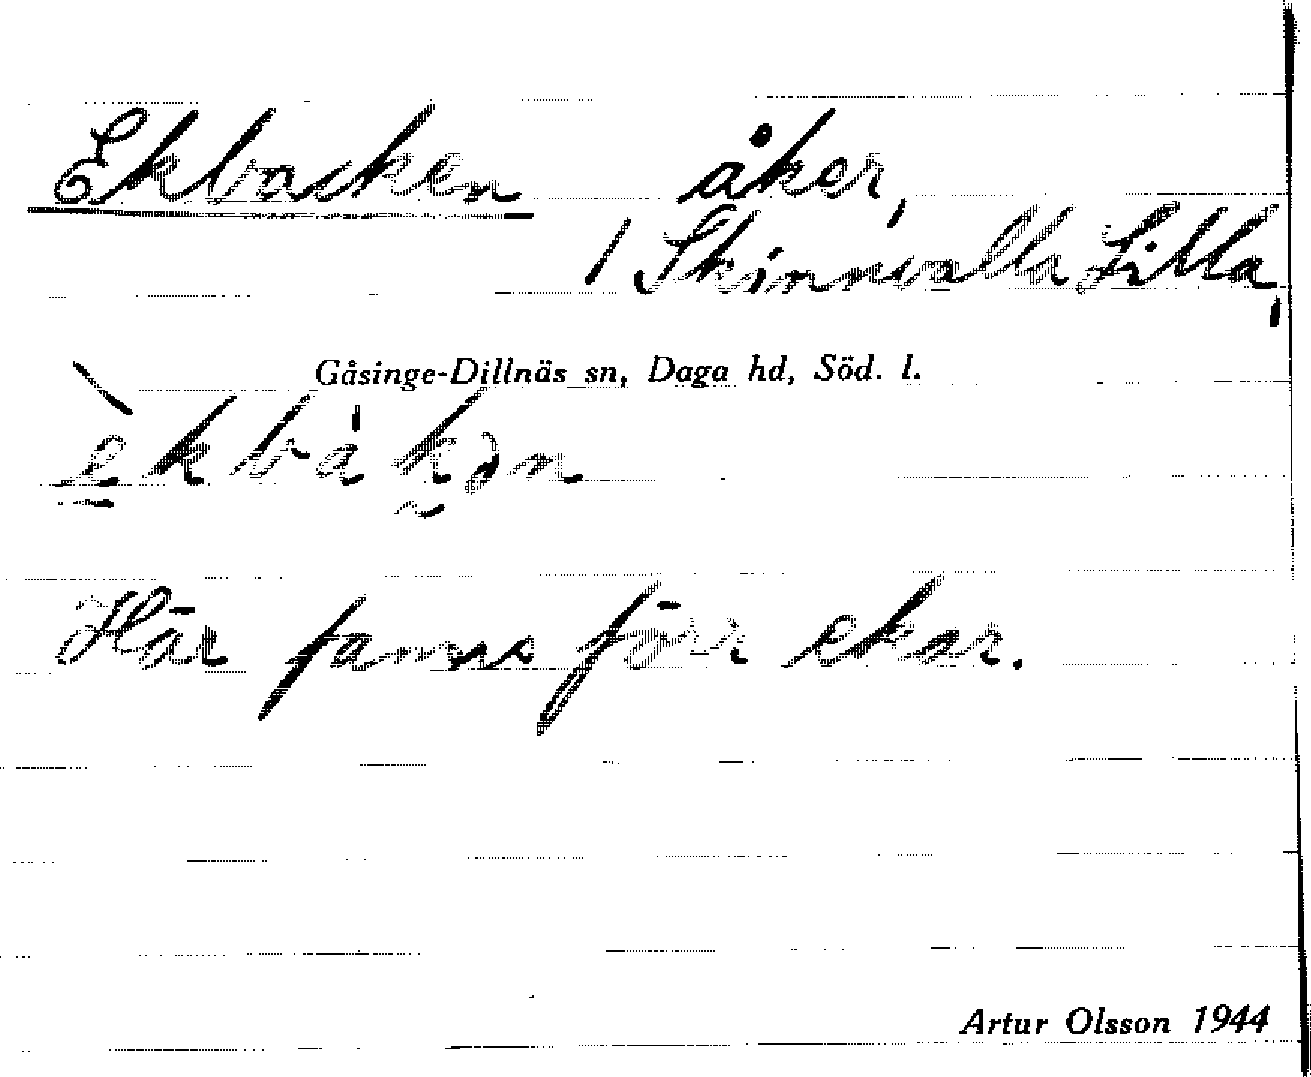 Ekbacken åker,
/ Skinnvalla Lilla,
Gåsinge-Dillnäs sn, Daga hd, Söd. l.
è̱kbákən
Här fanns förr ekar.
Artur Olsson 1944